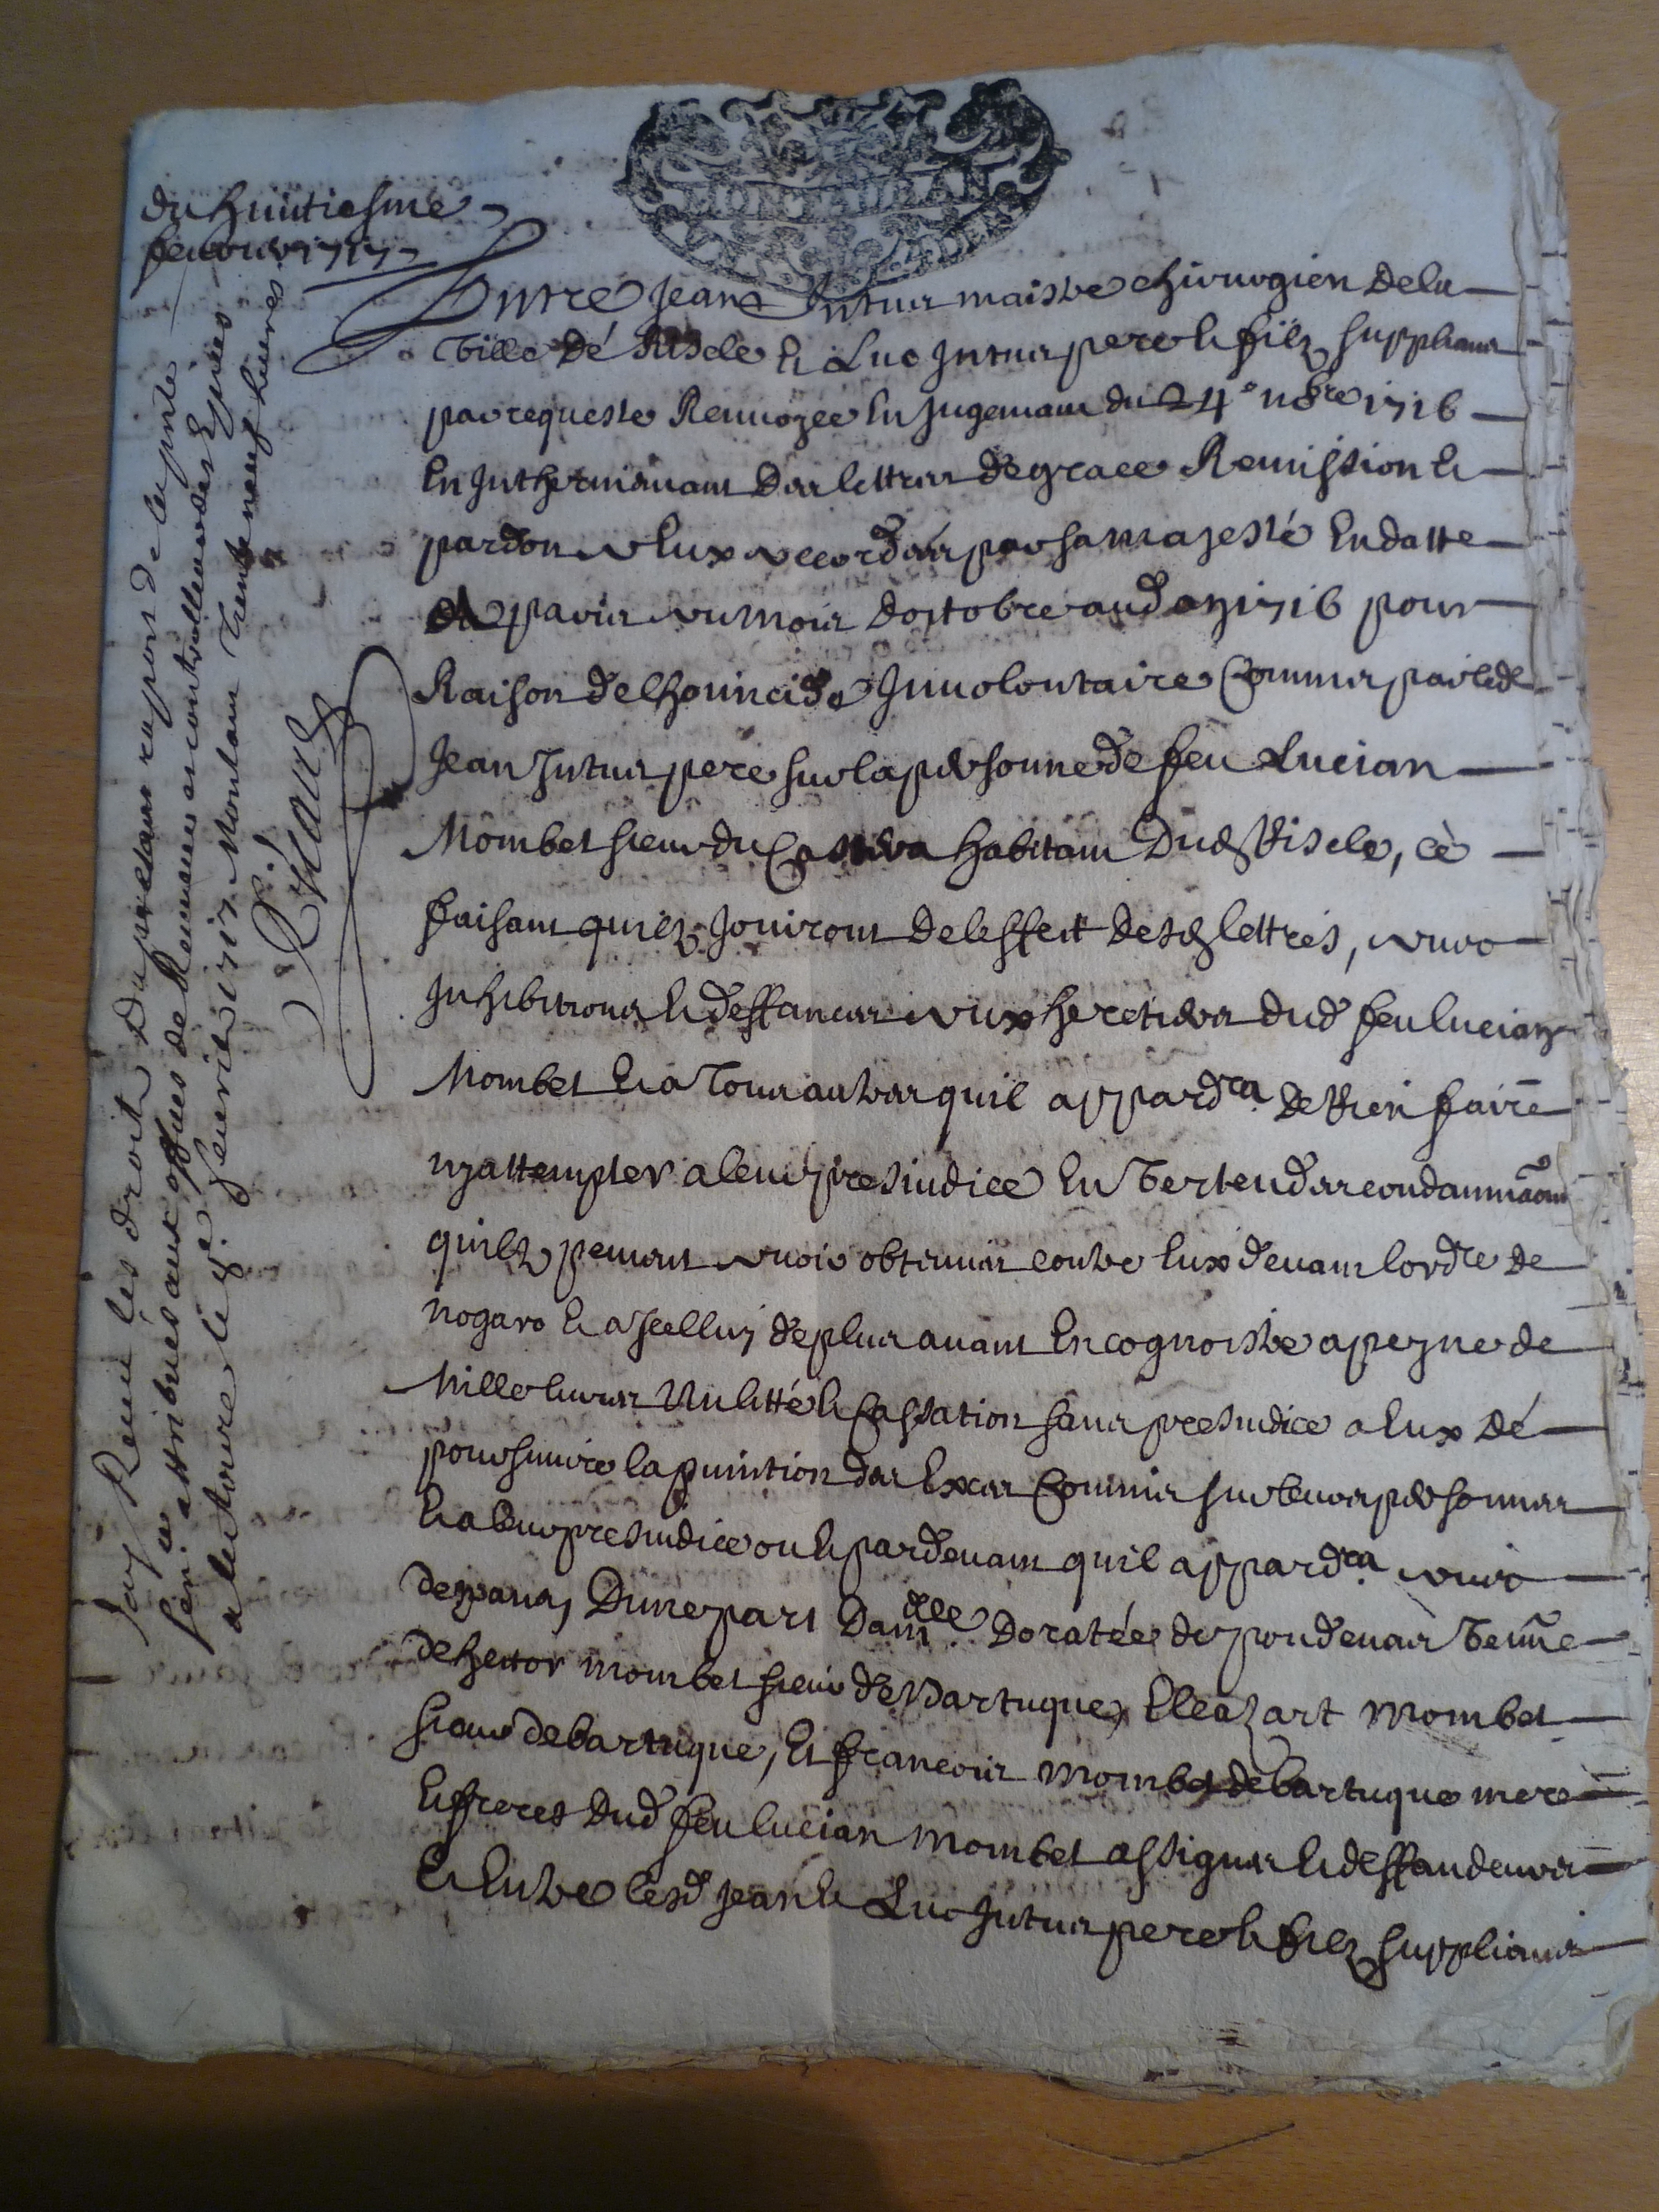 MONTAUBAN
du huitiesme
feurier 1717
Entre Jean Intus maistre chirurgien dela
Ville dé Riscle et Luc Intus pere et filz supplians
par requeste Renuoyee en Jugemant du 24e 9bre 1716
En Inthernimant des lettres de grace Remission et
pardon a eux accordées par sa majesté En datte
de paris au mois doctobre aud an 1716 pour
Raison de lhomicide Inuolontaire Commis par led
Jean Intus pere sur la personne de feu Lucian
Mombet sieur du habitant dud Riscle, cè
faisant quilz Jouiront de leffect desd lettres, auec
Inhibitions et deffances aux heretiers dud feu lucian
Mombet et a tous autres quil appardra de Rien faire
ny attempter a leur presiudice En Vertu des condamnaons
quilz peuuent auoir obtenues contre Eux deuant lordre de
nogaro et a Icelluy de plus auant En cognoistre a peyne de
Mille liures Nulitté et Cassation sans presiudice a Eux dé
poursuiure la punition des Exces Commis sur leurs personnes
Et a leur presiudice ou et pardeuant quil appardra auec
despans, Dune part Damlle Doratée de poudenas Veuue
de hector mombet sieur de Bartuque, Eleazart Mombet
sieur de bartuque, Et francois mombet de bartuque mere
Et freres dud feu lucian mombet assignes et deffandeurs
Et Entre lesd Jean et Luc Intus pere et filz supplians
Jay Receu les droits du presant raport de la pnte
sence attribués aux offices de Receueurs et controlleurs des Epices
a lectoure le 8e feurier 1717 Montant Trente neuf liures